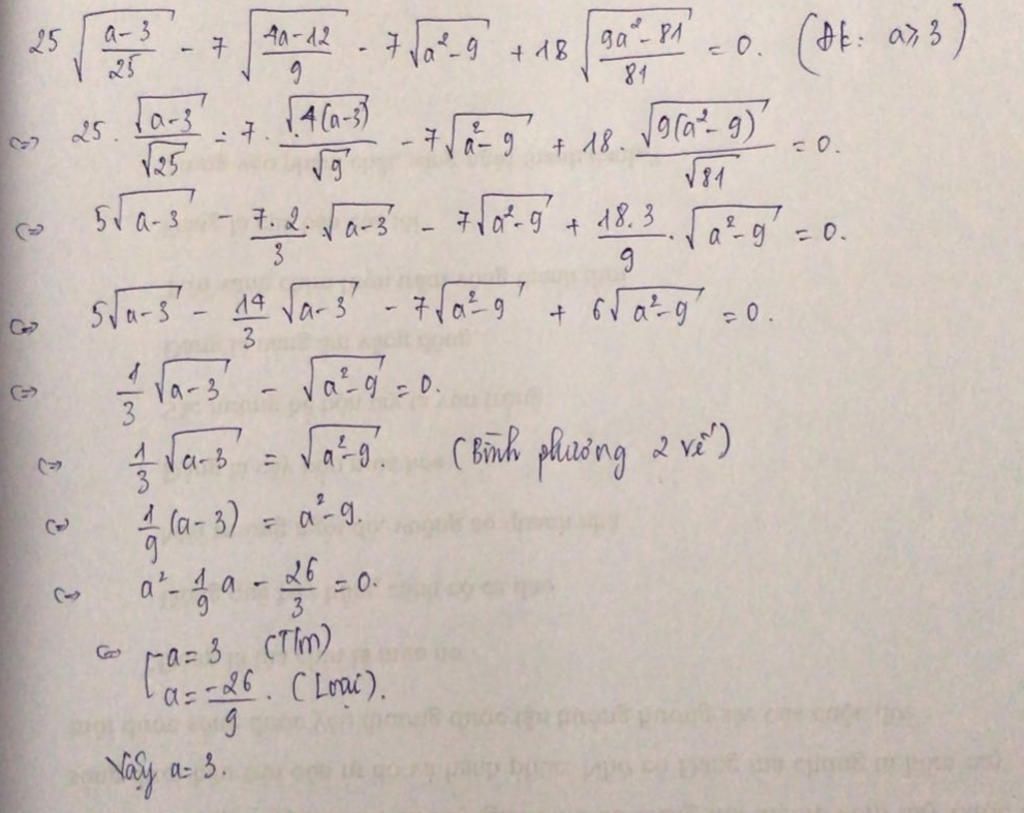 25√((a-3)/25) - 7√((4a-12)/9) - 7√(a²-9) + 18√((9a²-81)/81) = 0. (Đk: a ⩾ 3)
<=> 25 . √(a-3)/√25 - 7 . √(4(a-3))/√9 - 7√(a²-9) + 18 . √(9(a²-9))/√81 = 0.
<=> 5√(a-3) - (7.2)/3 . √(a-3) - 7√(a²-9) + (18.3)/9 . √(a²-9) = 0.
<=> 5√(a-3) - 14/3 √(a-3) - 7√(a²-9) + 6√(a²-9) = 0.
<=> 1/3 √(a-3) - √(a²-9) = 0.
<=> 1/3 √(a-3) = √(a²-9) (Bình phương 2 vế)
<=> 1/9 (a-3) = a²-9.
<=> a² - 1/9 a - 26/3 = 0.
<=> [ a = 3 (T/m)
a = -26/9 . (Loại).
Vậy a = 3.